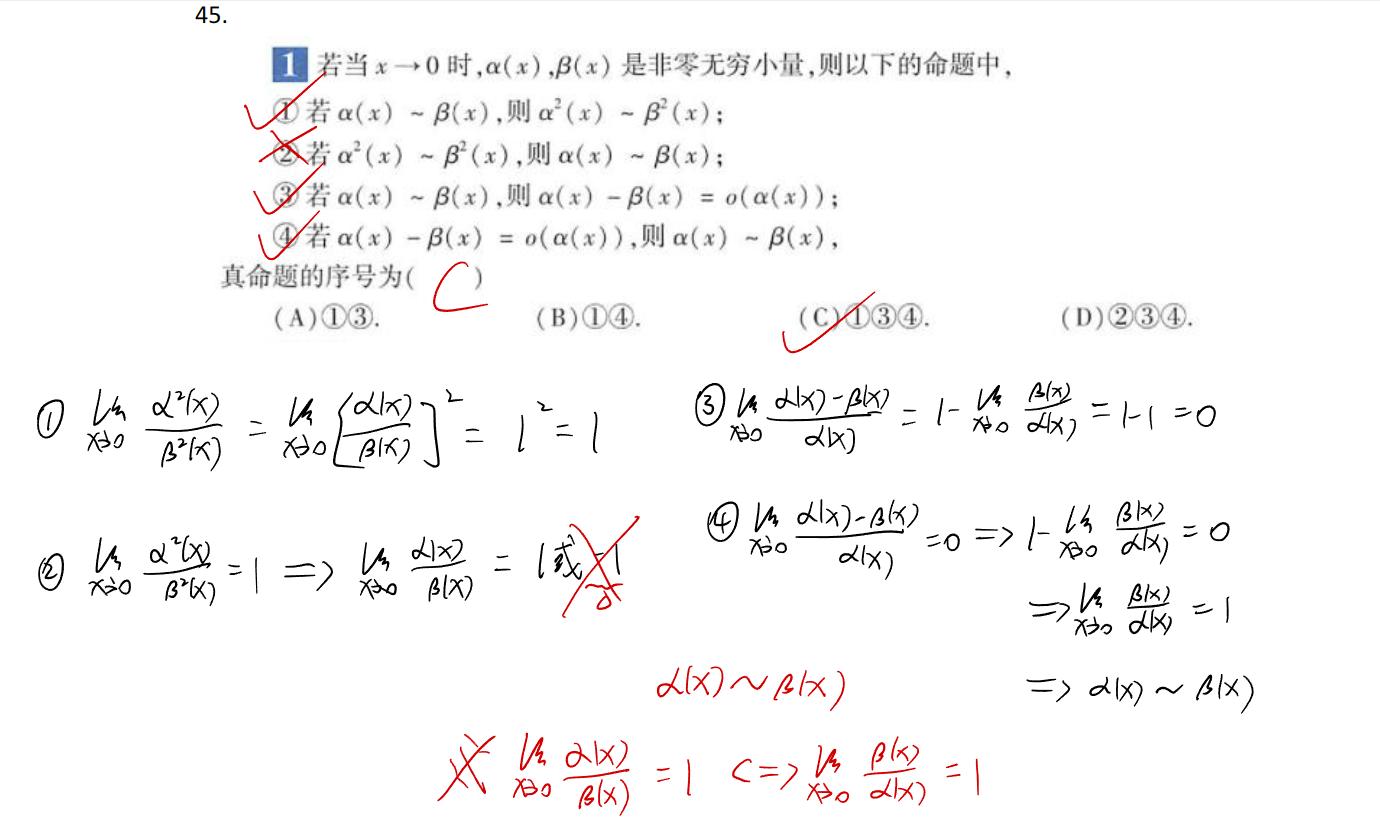 45.
1 若当 x→0 时,α(x),β(x) 是非零无穷小量,则以下的命题中,
①若 α(x) ~ β(x),则 α²(x) ~ β²(x);
②若 α²(x) ~ β²(x),则 α(x) ~ β(x);
③若 α(x) ~ β(x),则 α(x) - β(x) = o(α(x));
④若 α(x) - β(x) = o(α(x)),则 α(x) ~ β(x),
真命题的序号为( C )
(A)①③. (B)①④. (C)①③④. (D)②③④.
① lim x→0 α²(x)/β²(x) = lim x→0 [α(x)/β(x)]² = 1² = 1
③ lim x→0 (α(x)-β(x))/α(x) = 1- lim x→0 β(x)/α(x) = 1-1 = 0
② lim x→0 α²(x)/β²(x) = 1 => lim x→0 α(x)/β(x) = 1或-1
④ lim x→0 (α(x)-β(x))/α(x) = 0 => 1- lim x→0 β(x)/α(x) = 0
=> lim x→0 β(x)/α(x) = 1
=> α(x) ~ β(x)
α(x) ~ β(x)
lim x→0 α(x)/β(x) = 1 <=> lim x→0 β(x)/α(x) = 1